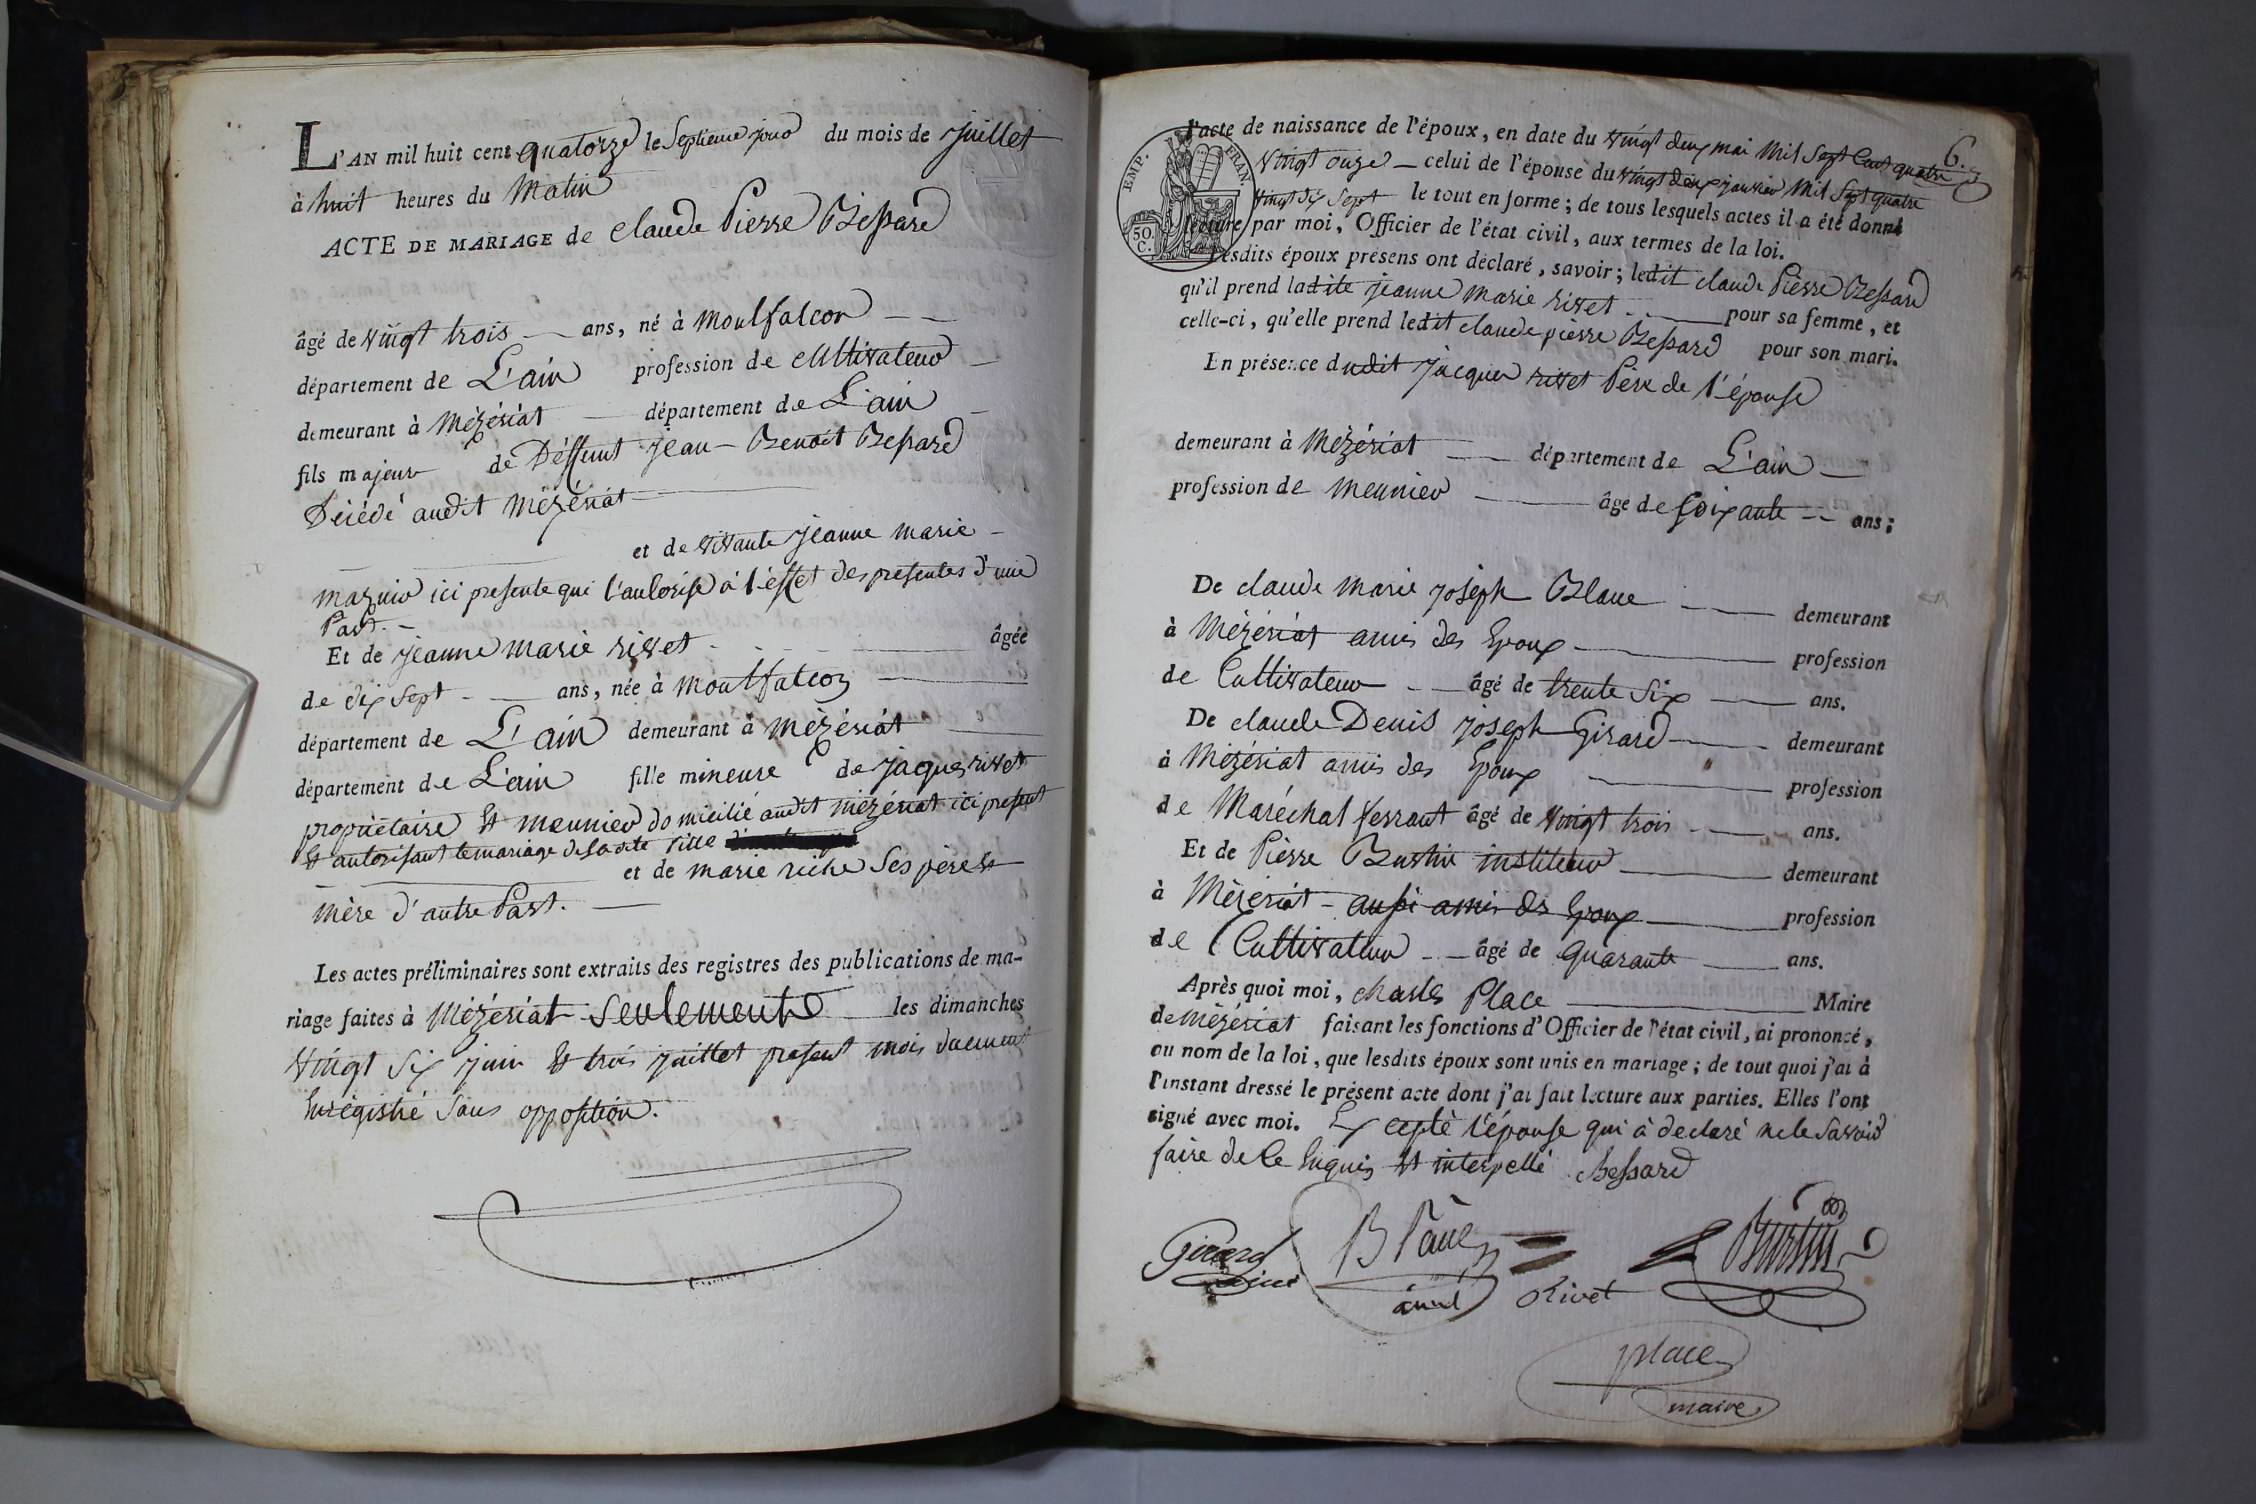 L'AN mil huit cent quatorze le Septieme jour du mois de juillet
à huit heures du Matin
ACTE DE MARIAGE de claude Pierre Bessard
âgé de vingt trois ans, né à Montfalcon
département de L'ain profession de cultivateur
demeurant à Mézériat département de L'ain
fils majeur de Deffunt jean Benoit Bessard
Décédé audit Mézériat
et de vivante jeanne marie
ici presente qui l'autorise à l'effet des presentes d'une
Part.
Et de jeanne marie rivet âgée
de dix sept ans, née à Montfalcon
département de L'ain demeurant à Mézériat
département de L'ain fille mineure de jaques rivet
propriétaire et meunier domicilié audit mézériat ici present
et autorisant le mariage de sadite fille
et de marie riche Ses père et
mère d'autre Part.
Les actes préliminaires sont extraits des registres des publications de ma-
riage faites à Mézériat Seulement les dimanches
vingt six juin et trois juillet present mois duement
Enregistré Sans opposition.
6.
l'acte de naissance de l'époux, en date du vingt deux mai Mil Sept Cent quatre
vingt onze celui de l'épouse du vingt deux janvier Mil Sept quatre
vingt dix Sept le tout en forme; de tous lesquels actes il a été donné
lecture par moi, Officier de l'état civil, aux termes de la loi.
EMP. FRAN.
50. C.
Lesdits époux présens ont déclaré, savoir; ledit claude Pierre Bessard
qu'il prend ladite jeanne marie rivet pour sa femme, et
celle-ci, qu'elle prend ledit claude pierre Bessard pour son mari.
En présence dudit jacques rivet Père de l'épouse
demeurant à Mézériat département de L'ain
profession de meunier âgé de soixante ans;
De claude marie joseph Blanc demeurant
à Mézériat amis des Epoux profession
de Cultivateur âgé de trente Six ans.
De claude Denis joseph Girard demeurant
à Mézériat amis des Epoux profession
de Maréchal ferrant âgé de vingt trois ans.
Et de Pierre Burtin instituteur demeurant
à Mézériat aussi amis des Epoux profession
de Cultivateur âgé de quarante ans.
Après quoi moi, charles Place Maire
de Mézériat faisant les fonctions d'Officier de l'état civil, ai prononcé,
au nom de la loi, que lesdits époux sont unis en mariage; de tout quoi j'ai à
l'instant dressé le présent acte dont j'ai fait lecture aux parties. Elles l'ont
signé avec moi. Excepté l'épouse qui à declaré ne le Savoir
faire de Ce Enquis et interpellé Bessard
Girard Blanc Burtin
Rivet
place
maire